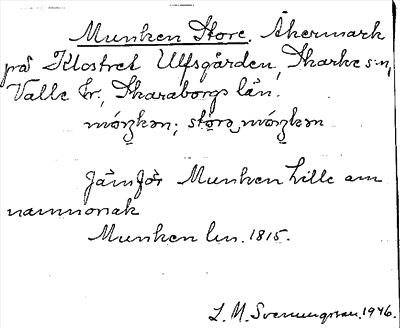 Munken Store. Åkermark
på Klostret Ulfsgården, Skarke s:n,
Valle hr, Skaraborgs län.
móŋkən; stora móŋkən
Jämför Munken Lille om
namnorsak
Munken lm. 1815.
L. M. Svenungsson. 1946.